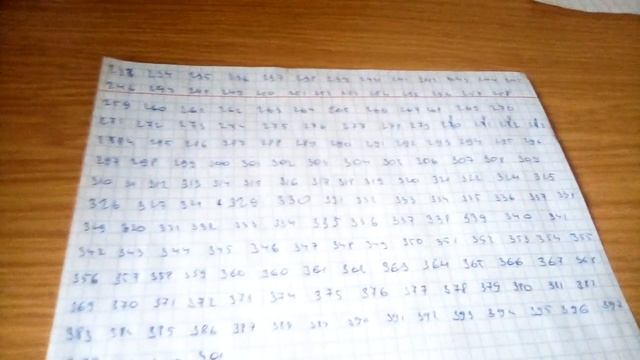 233 234 235 236 237 238 239 240 241 242 243 244 245
246 247 248 249 250 251 252 253 254 255 256 257 258
259 260 261 262 263 264 265 266 267 268 269 270
271 272 273 274 275 276 277 278 279 280 281 282 283
284 285 286 287 288 289 290 291 292 293 294 295 296
297 298 299 300 301 302 303 304 305 306 307 308 309
310 311 312 313 314 315 316 317 318 319 320 321 322 324 325
326 327 328 329 330 331 332 333 334 335 336 337 338
349 320 331 332 333 334 335 336 337 338 339 340 341
342 343 344 345 346 347 348 349 350 351 352 353 354 355
356 357 358 359 360 360 361 362 363 364 365 366 367 368
369 370 371 372 373 374 375 376 377 378 379 380 381 382
383 384 385 386 387 388 389 390 391 392 393 394 395 396 397